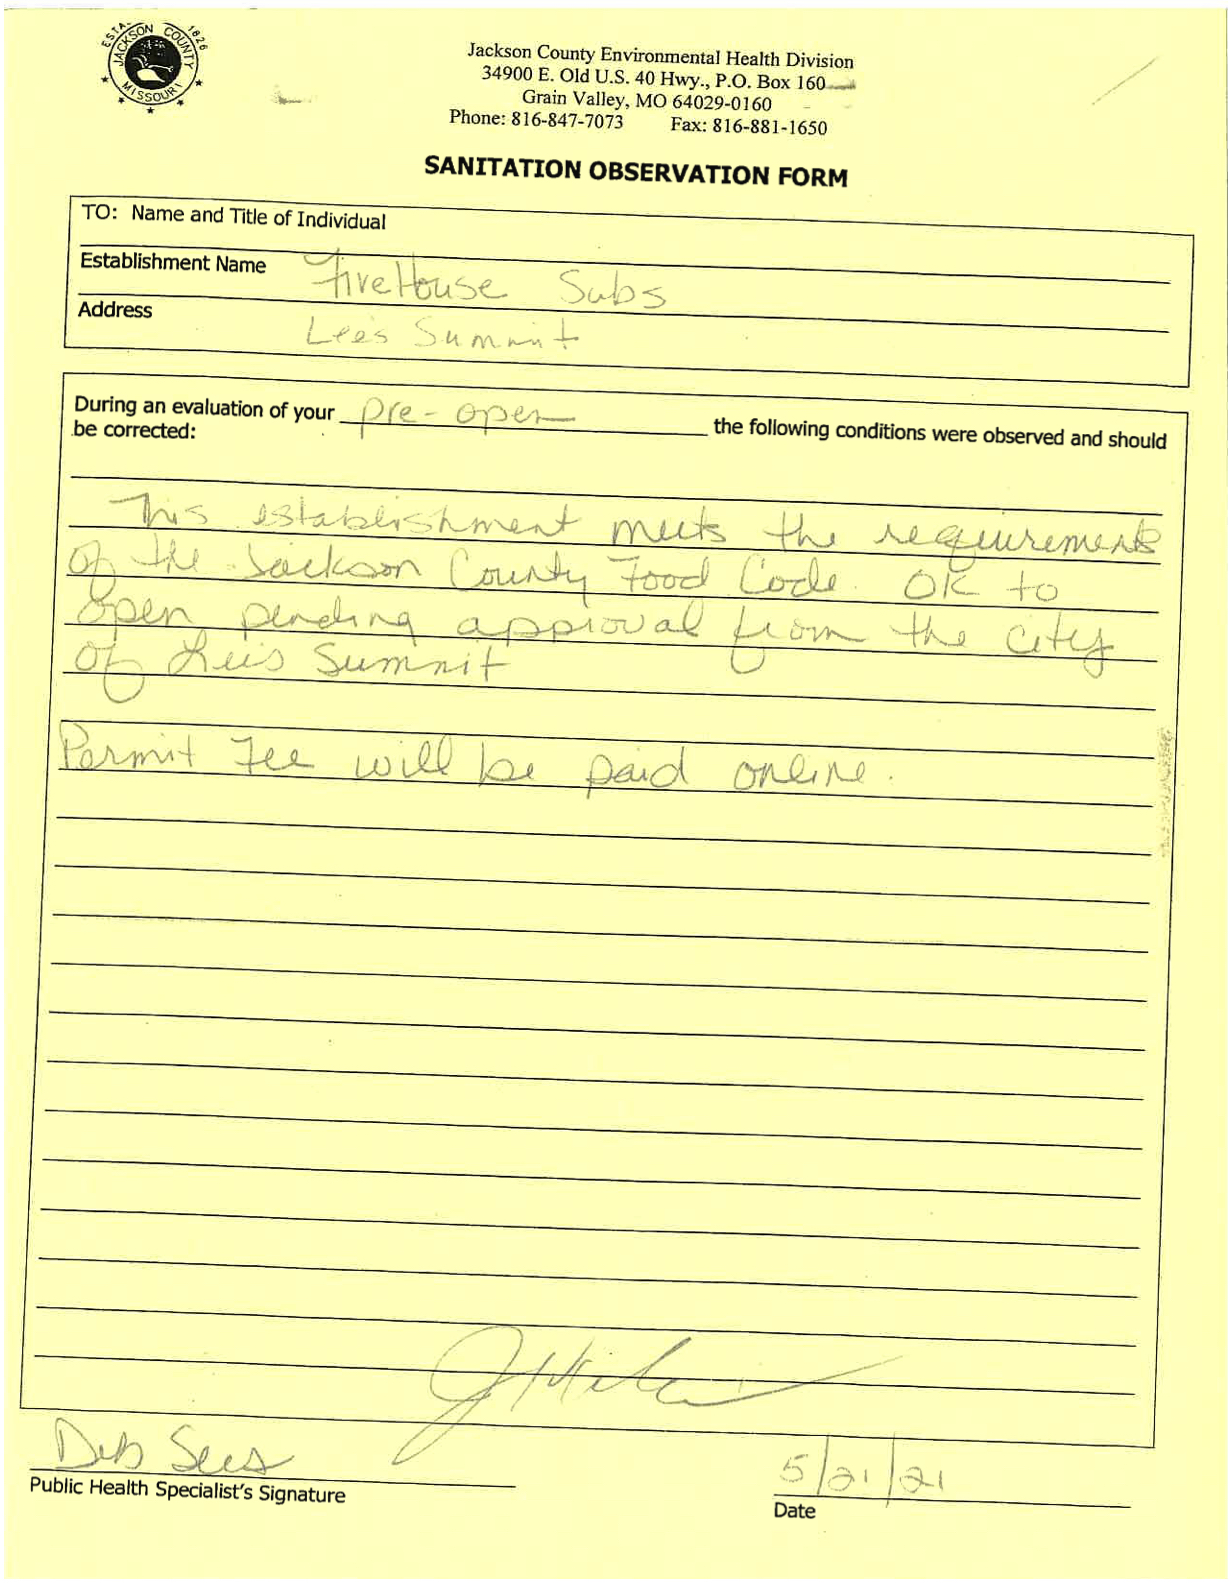 ESTA. 1826
JACKSON COUNTY
MISSOURI
Jackson County Environmental Health Division
34900 E. Old U.S. 40 Hwy., P.O. Box 160
Grain Valley, MO 64029-0160
Phone: 816-847-7073 Fax: 816-881-1650
SANITATION OBSERVATION FORM
TO: Name and Title of Individual
Establishment Name FireHouse Subs
Address Lee's Summit
During an evaluation of your pre-open the following conditions were observed and should
be corrected:
This establishment meets the requirements
of the Jackson County Food Code. OK to
open pending approval from the city
of Lee's Summit
Permit Fee will be paid online.
Deb Sees
Public Health Specialist's Signature
5/21/21
Date